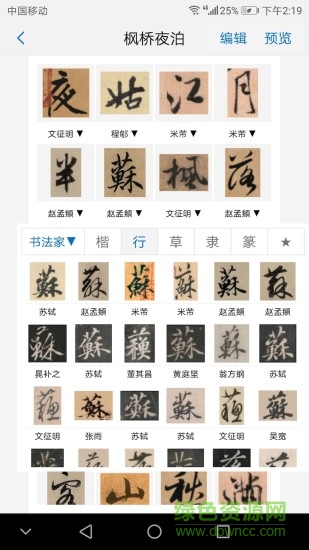 中国移动 4G 25% 下午2:19
枫桥夜泊 编辑 预览
夜 姑 江 月
文征明▼ 程邬▼ 米芾▼ 米芾▼
半 蘇 楓 落
赵孟頫▼ 赵孟頫▼ 文征明▼ 赵孟頫▼
书法家▼ 楷 行 草 隶 篆 ★
蘇 蘇 蘇 蘇 蘇 蘇
苏轼 赵孟頫 米芾 米芾 赵孟頫 赵孟頫
蘇 蘇 蘇 蘇 蘇 蘇
晁补之 苏轼 董其昌 黄庭坚 翁方纲 苏轼
蘇 蘇 蘇 蘇 蘇 蘇
文征明 张雨 苏轼 苏轼 文征明 吴宽
客 山 秋 满
绿色资源网
www.downcc.com